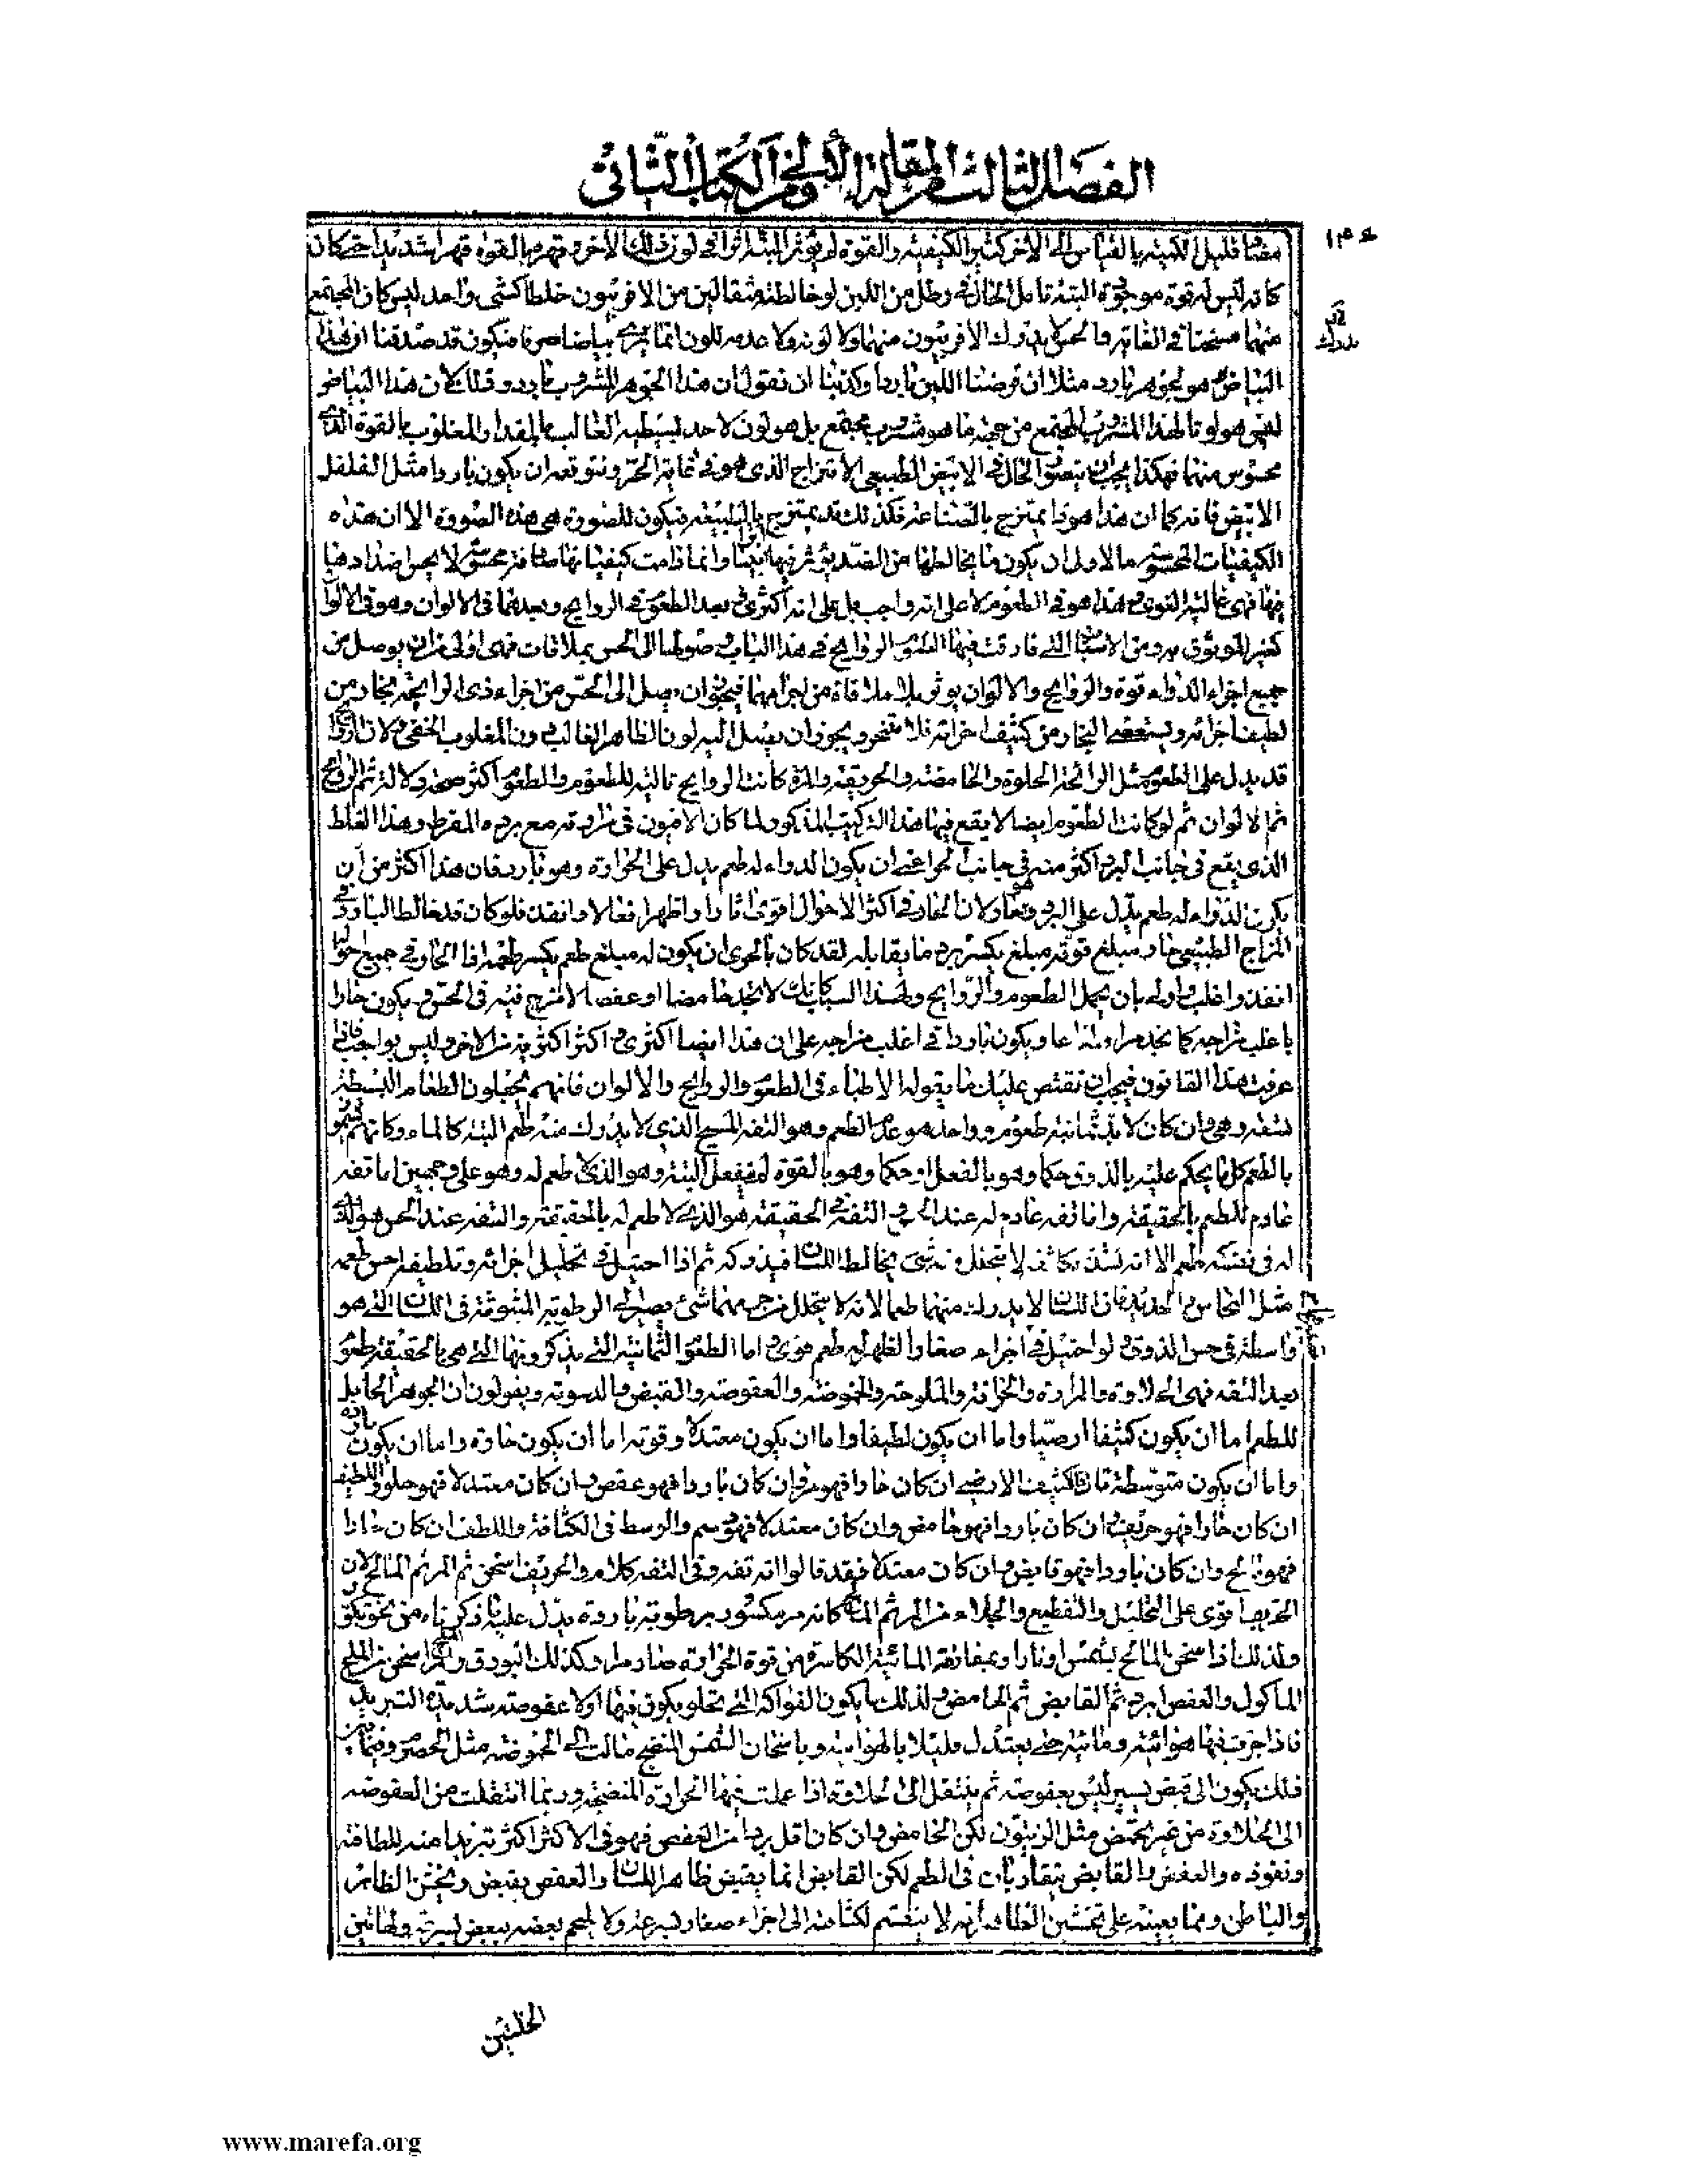 الفصل الثالث من المقالة الاولى من الكتاب الثانى
قليل الكمية بالقياس الى الاخر كثير الكيفية والقوة لم يؤثر البتة اثرا فى لون ذلك الاخر وقهره بالقوة قهرا شديدا حتى كان
كانه ليس له قوة موجودة البتة تامل الحال فى رطل من اللبن لو خالطه مثقالين من الافربيون خلطا كشى واحد ليس كان المجتمع
منهما مسخنا فى الغاية والحس لا يدرك الافربيون منهما ولا لونه ولا عدمه للون انما يرى بياضا صرفا فيكون قد صدقنا ان هذا
البياض هو لجوهر بارد مثلا ان فرضنا اللبن باردا وكذبنا ان نقول ان هذا الجوهر المشروب بارد وذلك لان هذا البياض
ليس هو لونا لهذا المشروب المجتمع من جهة ما هو مشروب مجتمع بل هو لون لاحد بسيطيه الغالب بالمقدار المغلوب بالقوة الذى
محسوس منهما فهكذا يجب ان يتصور الحال فى الابيض الطبيعى الامتزاج الذى هو فى غاية الحر ونتوقعه ان يكون باردا مثل الفلفل
الابيض فانه كما ان هذا هو ذا يمتزج بالصناعة فكذلك قد يمتزج بالطبيعة فيكون للصورة هى هذه الصورة الا ان هذه
الكيفيات المحسوسة ما لاولى ان يكون ما يخالطها من الضد يؤثر فيها اثرا بينا وانما دامت كيفياتها صافية محسوسة لا يحس ضدا دها
فيها فهى غالبة القوى وهذا هو فى الطعوم لا على انه واجب بل على انه اكثرى وبعد الطعوم فى الروايح وبعدهما فى الالوان وهو فى الالوان
كغير الموثوق به ومن الاسباب التى فارقت فيها الطعوم الروايح فى هذا الباب وصولها الى الحس بملاقات فهى اولى من ان يوصل من
جميع اجزاء الدواء قوة والروايح والالوان يوثر بلا ملاقاة من اجرامها فيجوز ان يصل الى الحس من اجزاء ذى الرايحة بخار من
لطيف اجزائه ويستعصى البخار من كثيف اجزائه فلا يتبخر ويجوز ان يصل اليه لون الظاهر الغالب دون المغلوب الخفى ولان الروايح
قد يدل على الطعوم مثل الرائحة الحلوة والحامضة والحريفة والمرة كانت الروايح تالية للطعوم والطعوم اكثر صحة ودلالة ثم الروايح
ثم الالوان ثم لو كانت الطعوم ايضا لا يقع فيها هذا التركيب المذكور لما كان الافيون فى مرارته مع برده المفرط وهذا الغلط
الذى يقع فى جانب البرد اكثر منه فى جانب الحر اعنى ان يكون الدواء له طعم يدل على الحرارة وهو بارد فان هذا اكثر من ان
يكون الدواء له طعم يدل على البرد وهو حار ولان الحار فى اكثر الاحوال اقوى اثارا واظهر افعالا وانفذ فلو كان قد خالط البارد فى
المزاج الطبيعى حار مبلغ قوته مبلغ يكسر برد ما يقابله لقد كان بالحرى ان يكون له مبلغ طعم يكسر طعمه اذا الحار فى جميع احواله
انفذ واغلب واولى بان يحمل الطعوم والروايح ولهذا السبب كانك لا تجد حامضا او عفصا لا ممتزج فيه فى الحس ويكون حارا
باغلب مزاجه كما تجد مرا ولذاعا ويكون باردا فى اغلب مزاجه على ان هذا ايضا اكثرى واكثر اكثرية من الاخر وليس بواجب فاذا
عرفت هذا القانون فيجب ان نقتص عليك ما يقوله الاطباء فى الطعوم والروايح والالوان فانهم يجعلون الطعام البسيطة
تسعة وهى وان كان لا بد ثمانية طعوم وواحد هو عدم الطعم وهو التفه المسيخ الذى لا يدرك منه طعم البتة كالماء وكانهم سموا
بالطعم كل ما يحكم عليه بالذوق حكما وهو بالفعل او حكما وهو بالقوة لم ينفعل البتة وهو الذى لا طعم له وهو على وجهين اما تفه
عادم للطعم بالحقيقة واما تفه عادم له عند الحس والتفه فى الحقيقة هو الذى لا طعم له بالحقيقة والتفه عند الحس هو الذى
له فى نفسه طعم الا انه لشدة تكاثفه لا يتحلل منه شى يخالط اللسان فيذوكه ثم اذا احتيل فى تحليل اجزائه وتلطيفه احس طعمه
مثل النحاس والحديد فان اللسان لا يدرك منهما طعما لانه لا يتحلل من جرمهما شئ يصير الى الرطوبة المبثوثة فى اللسان التى هو
واسطة فى حس الذوق ولو احتيل فى اجزاء صغارا لظهر له طعم قوى اما الطعوم الثمانية التى يذكرونها التى هى بالحقيقة طعوم
بعد التفه فهى الحلاوة والمرارة والحرافة والملوحة والحموضة والعفوصة والقبض والدسومة ويقولون ان الجوهر الحامل
للطعم اما ان يكون كثيفا ارضيا واما ان يكون لطيفا واما ان يكون معتدلا وقوته اما ان يكون حارة واما ان يكون باردة
واما ان يكون متوسطة فالكثيف الارضى ان كان حارا فهو مر وان كان باردا فهو عفص وان كان معتدلا فهو حلو واللطيف
ان كان حارا فهو حريف وان كان باردا فهو حامض وان كان معتدلا فهو دسم والوسط فى الكثافة واللطف ان كان حارا
فهو مالح وان كان باردا فهو قابض وان كان معتدلا فقد قالوا انه تفه وفى التفه كلام والحريف اسخن ثم المر ثم المالح لان
الحريف اقوى على التحليل والتقطيع والجلاء من المر ثم المالح كانه مر مكسور برطوبة باردة يدل عليه ما ذكرناه من نحو تكون
ولذلك اذا سخن المالح بشمس او نار او بمفارقة المائية الكاسرة من قوة الحرارة صار مرا وكذلك البورق والملح المر اسخن من الملح
المأكول والعفص ابرد ثم القابض ثم الحامض ولذلك ما يكون الفواكه التى تحلو يكون فيها اولا عفوصة شديدة التبريد
فاذا جرت فيها هوائية ومائية حتى يعتدل قليلا بالهوائية وباسخان الشمس المنضج مالت الى الحموضة مثل الحصرم وفيما بين
ذلك يكون الى قبض يسير ليس بعفوصة ثم ينتقل الى الحلاوة اذا عملت فيها الحرارة المنضجة وربما انتقلت من العفوصة
الى الحلاوة من غير تحمض مثل الزيتون لكن الحامض وان كان اقل بردا من العفص فهو فى الاكثر اكثر تبريدا منه للطافته
ونفوذه والعفص والقابض يتقاربان فى الطعم لكن القابض انما يقبض ظاهر اللسان والعفص يقبض ويخشن الظاهر
والباطن ومما يعينه على تخشين الظاهر انه لا ينقسم لكثافته الى اجزاء صغار بسرعة ولا يلتحم بعضه ببعض بسرعة
www.marefa.org